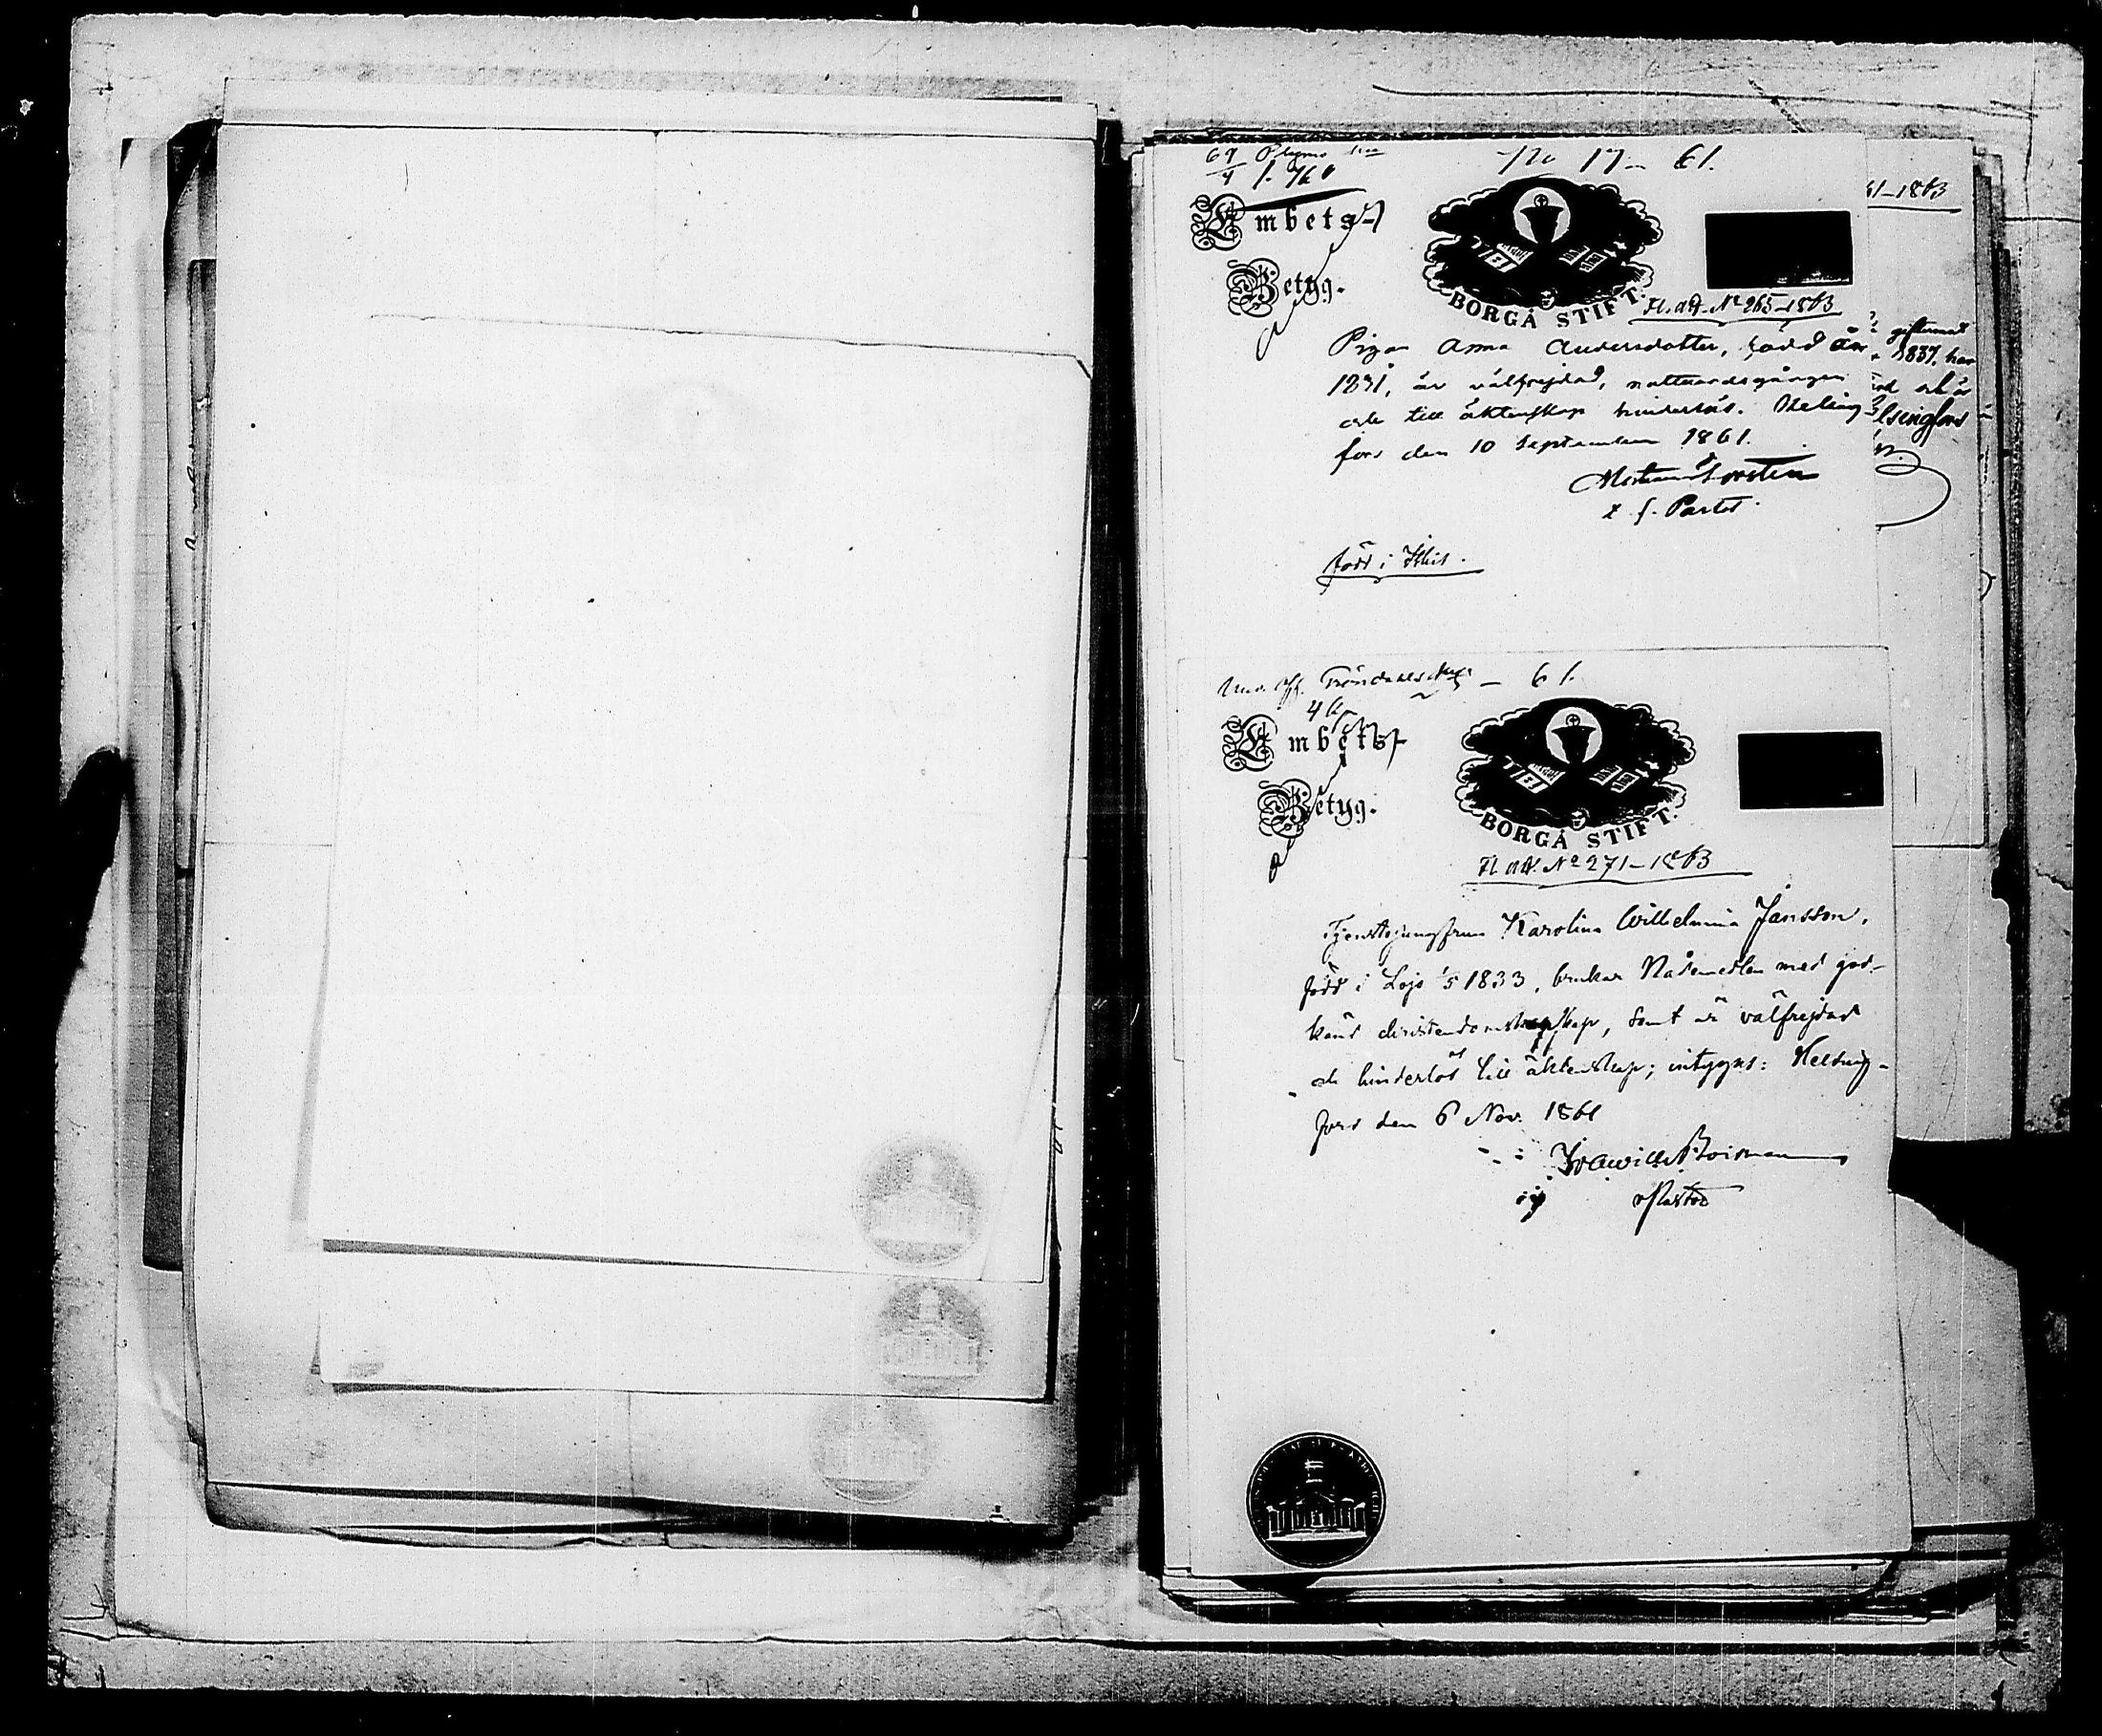 No 17 - 61.
61-1863
Embets-
Betyg.
BORGÅ STIFT.
Fl. att. No 265-1863
Pigan Anna Andersdotter, född år
1831, är välfrejdad, nattvardsgången
och till äktenskap hinderlös. Helsing
fors den 10 September 1861.
t. f. Pastor
född i Kkis.
1837. har
lsingfors
- 61.
Embets-
Betyg.
BORGÅ STIFT.
Fl. att. No 271-1863
Tjenstejungfrun Karolina Wilhelmina Jansson,
född i Lojo 1/5 1833, brukar Nådemedlen med god-
känd christendomskunskap, samt är välfrejdad
och hinderlös till äktenskap; intygas: Helsing-
fors den 6 Nov. 1861
Pastor